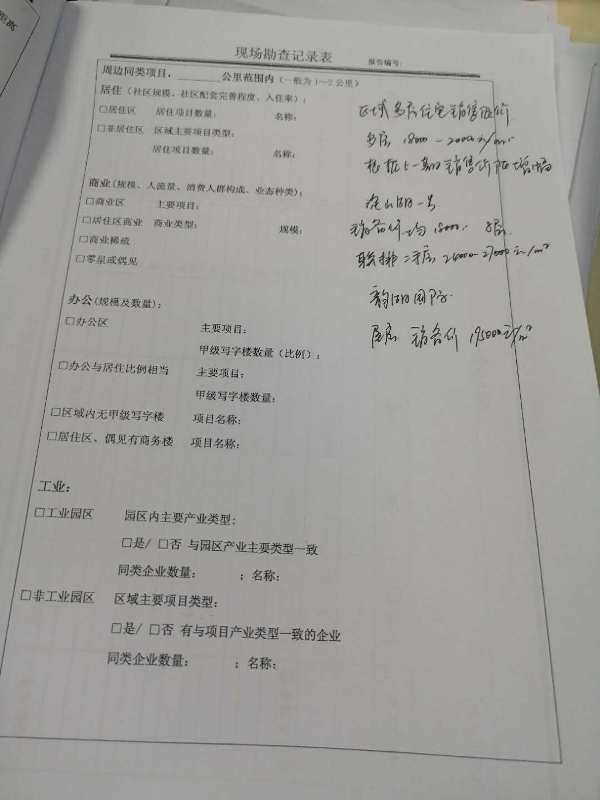 距离
现场勘查记录表 报告编号:
周边同类项目，________公里范围内（一般为1～2公里）
居住（社区规模、社区配套完善程度、入住率）:
□居住区 居住项目数量: 名称:
□非居住区 区域主要项目类型:
居住项目数量: 名称:
区域多层住宅销售
多层 18000－20000元/m²
上一期 销售价
商业(规模、人流量、消费人群构成、业态种类):
□商业区 主要项目:
□居住区商业 商业类型: 规模:
□商业稀疏
□零星或偶见
一号
销售价 均 18000
联排 二手房 26000-27000元/m²
办公(规模及数量):
□办公区 主要项目:
甲级写字楼数量（比例）:
□办公与居住比例相当 主要项目:
甲级写字楼数量:
□区域内无甲级写字楼 项目名称:
□居住区、偶见有商务楼 项目名称:
韵湖国际
销售价 19500元/m²
工业:
□工业园区 园区内主要产业类型:
□是/ □否 与园区产业主要类型一致
同类企业数量: ；名称:
□非工业园区 区域主要项目类型:
□是/ □否 有与项目产业类型一致的企业
同类企业数量: ；名称: